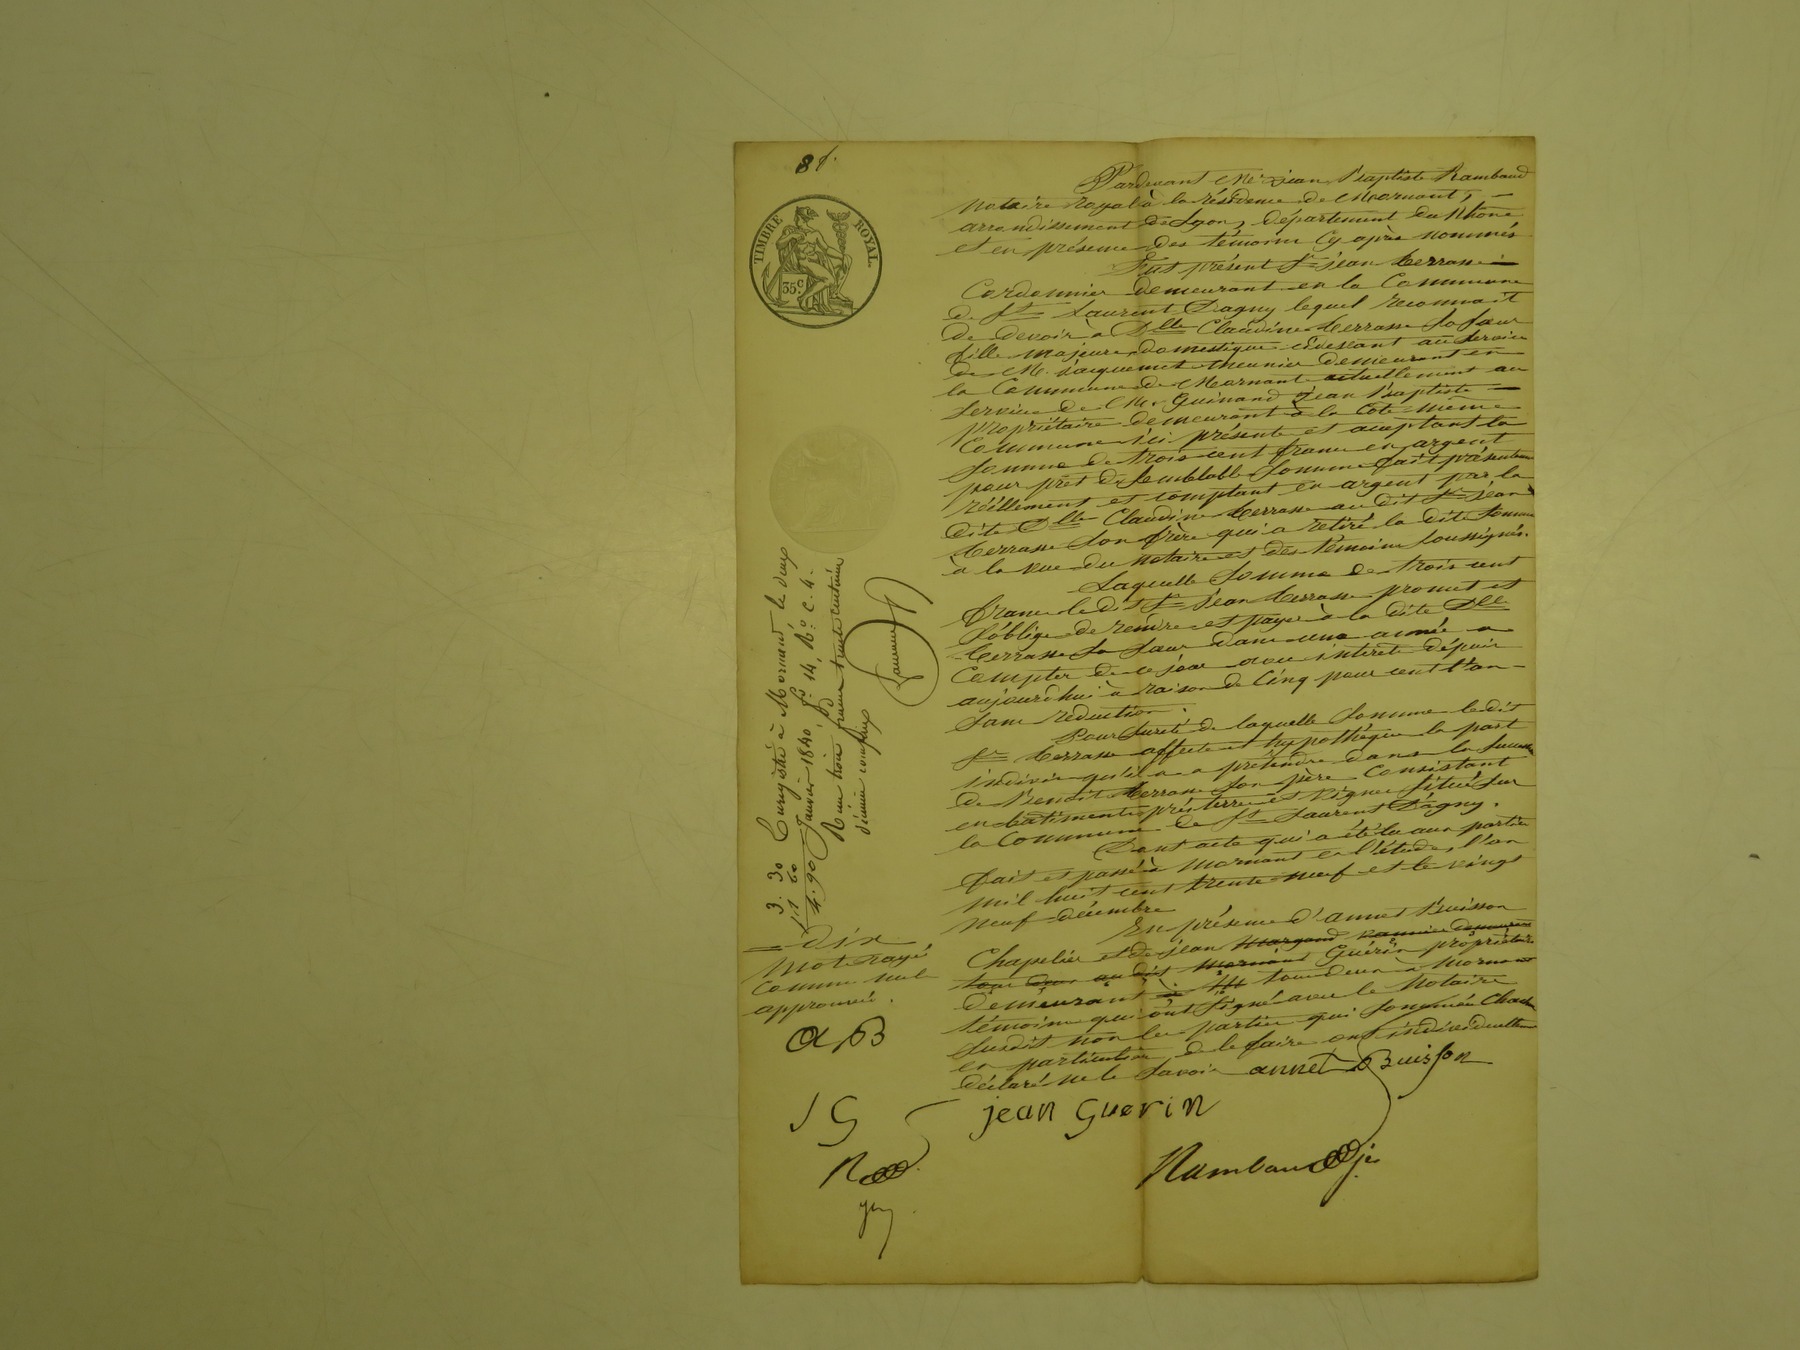 8 f.
TIMBRE ROYAL.
35c.
Pardevant Me jean Baptiste Rambaud
Notaire royal à la résidence de Mornant,
arrondissement de Lyon, département du Rhône
et en présence des témoins cy après nommés
Fut présent Sr jean Terrasse
Cordonnier demeurant en la Commune
de St Laurent Dagny lequel reconnait
de devoir à Dlle Claudine Terrasse sa sœur
fille majeure domestique cidevant au service
de M. jacquemet theunier demeurant en
la Commune de Mornant actuellement au
service de Mr Guinand jean Baptiste
propriétaire demeurant à la Cote même
Commune ici présente et acceptant la
somme de trois cent francs en argent
pour prêt de semblable somme fait présentement
réellement et comptant en argent par la
dite Dlle Claudine Terrasse au dit Sr jean
Terrasse son frère qui a retiré la dite somme
à la vue du notaire et des témoins soussignés.
Laquelle somme de trois cent
francs le dit Sr jean Terrasse promet et
s'oblige de rendre et payer à la dite Dlle
Terrasse sa sœur dans une année a
Compter de ce jour avec intérêt dépuis
aujourd'hui à raison de Cinq pour cent l'an
sans réduction.
Pour sureté de laquelle somme le dit
Sr Terrasse affecte et hypothéque la part
indivise qu'il a a prétendre dans la succession
de Benoit Terrasse son père Consistant
en batiments, prés terres et vignes situés sur
la Commune de St Laurent Dagny.
Dont acte qui a été lu aux parties
fait et passé à Mornant en l'étude, l'an
mil huit cent trente neuf et le vingt
neuf décembre
En présence d'annet Buisson
Chapelier et de jean Guérin propriétaire
demeurant tous deux à Mornant
témoins qui ont signé avec le Notaire
susdit non les parties qui sommées Chacune
en particulier de le faire ont individuellement
déclaré ne le savoir annet Buisson
jean Guerin
Rambaud jes
Enregistré à Mornant, le deux
Janvier 1840 fo 14, Ro c. 4.
Reçu trois francs trente centimes
décime compris
3. 30
1. 60
4. 90
dix
mots rayés
comme nuls
approuvés.
AB
JG